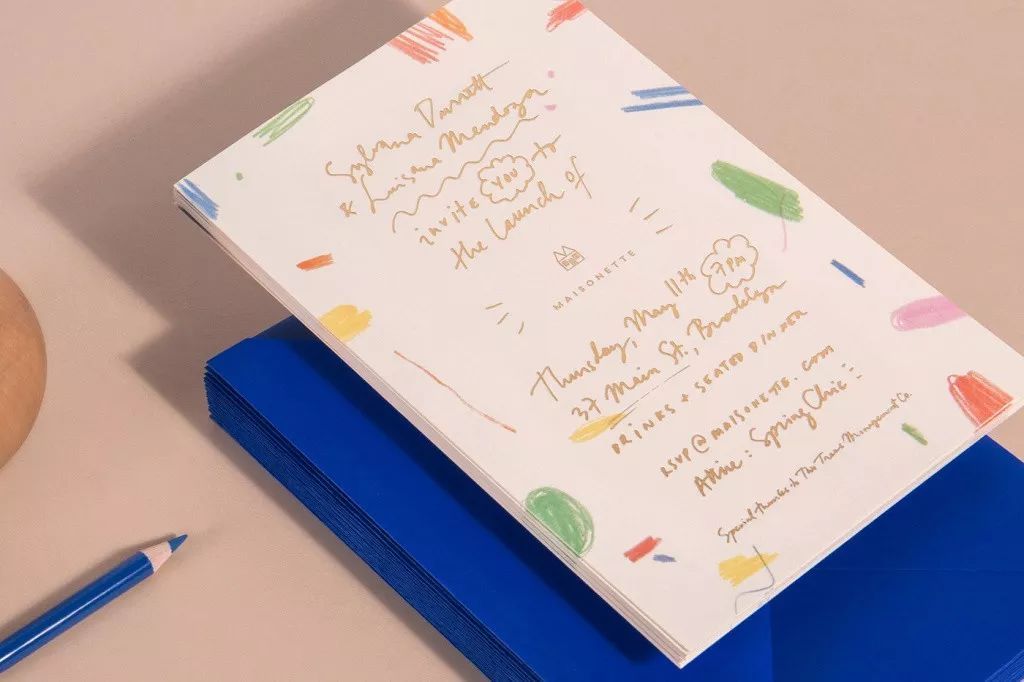 Sylvana Durrett
& Luisana Mendoza
invite YOU to
the Launch of
MAISONETTE
Thursday, May 11th 7PM
37 Main St., Brooklyn
DRINKS + SEATED DINNER
RSVP@MAISONETTE.COM
Attire: Spring Chic:
Special thanks to The Trust Management Co.